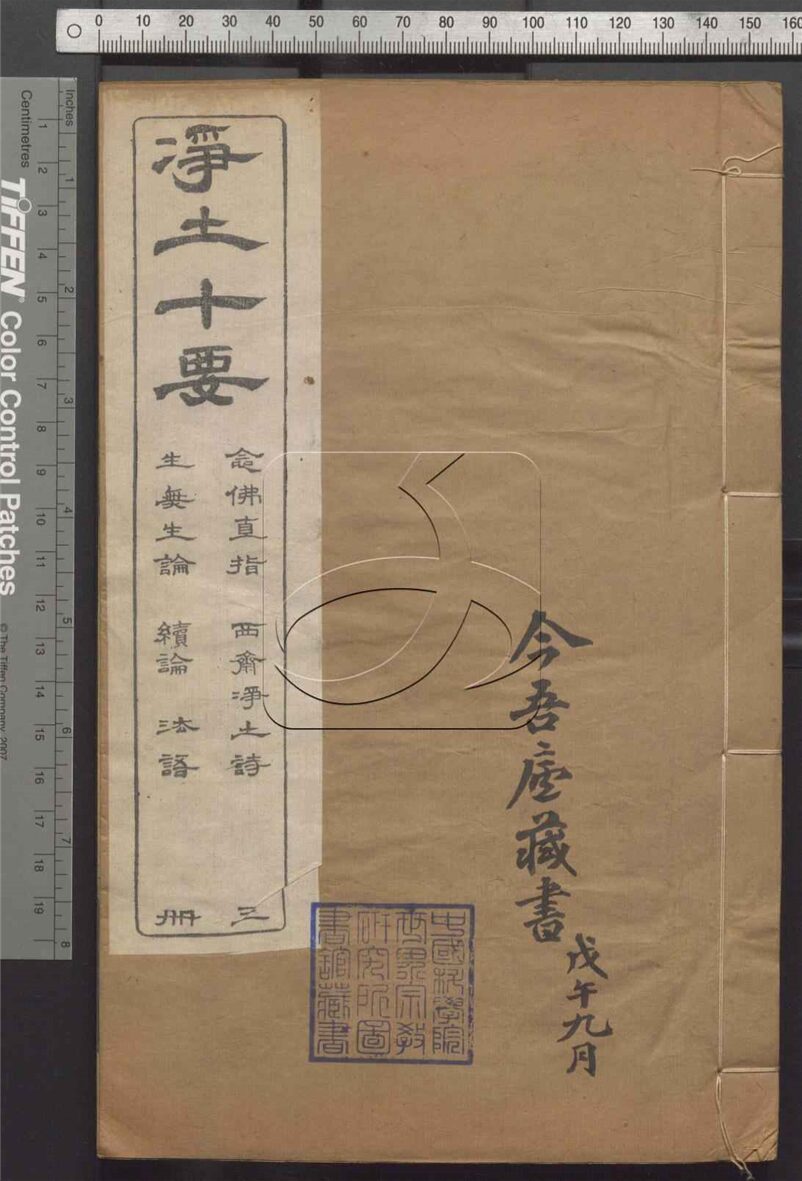 0 10 20 30 40 50 60 70 80 90 100 110 120 130 140 150 160
Inches
1 2 3 4 5 6 7 8
Centimetres
1 2 3 4 5 6 7 8 9 10 11 12 13 14 15 16 17 18 19
TIFFEN® Color Control Patches
© The Tiffen Company, 2007
今吾廬藏書
戊午九月
淨土十要
念佛直指 西齋淨土詩 三
生無生論 續論 法語 册
中國科學院
世界宗教
研究所圖
書館藏書